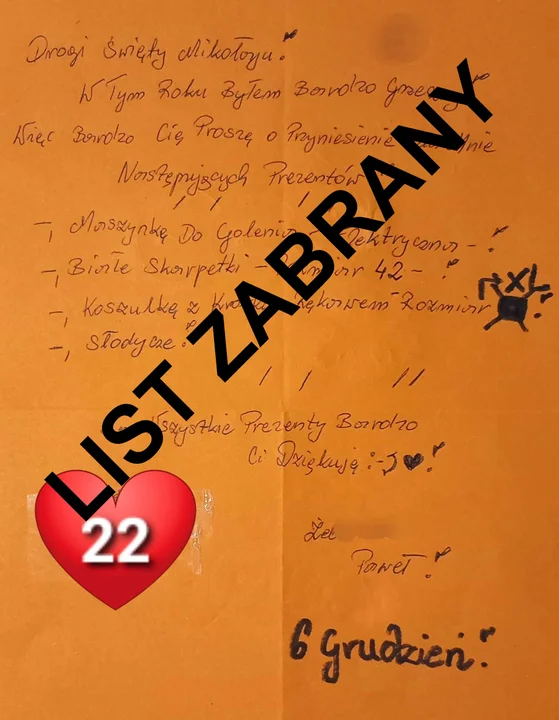 Drogi Święty Mikołaju!
W Tym Roku Byłem Bardzo
Więc Bardzo Cię Proszę o Przyniesienie
Następujących Prezentów
-, Maszynkę Do Golenia - Elektryczna - !
-, Białe Skarpetki - 42 - !
rXL
-, Koszulkę z Rękawem - Rozmiar !
-, Słodycze!
Wszystkie Prezenty Bardzo
Ci Dziękuję :-) ♥!
Paweł!
6 Grudzień!
LIST ZABRANY
22